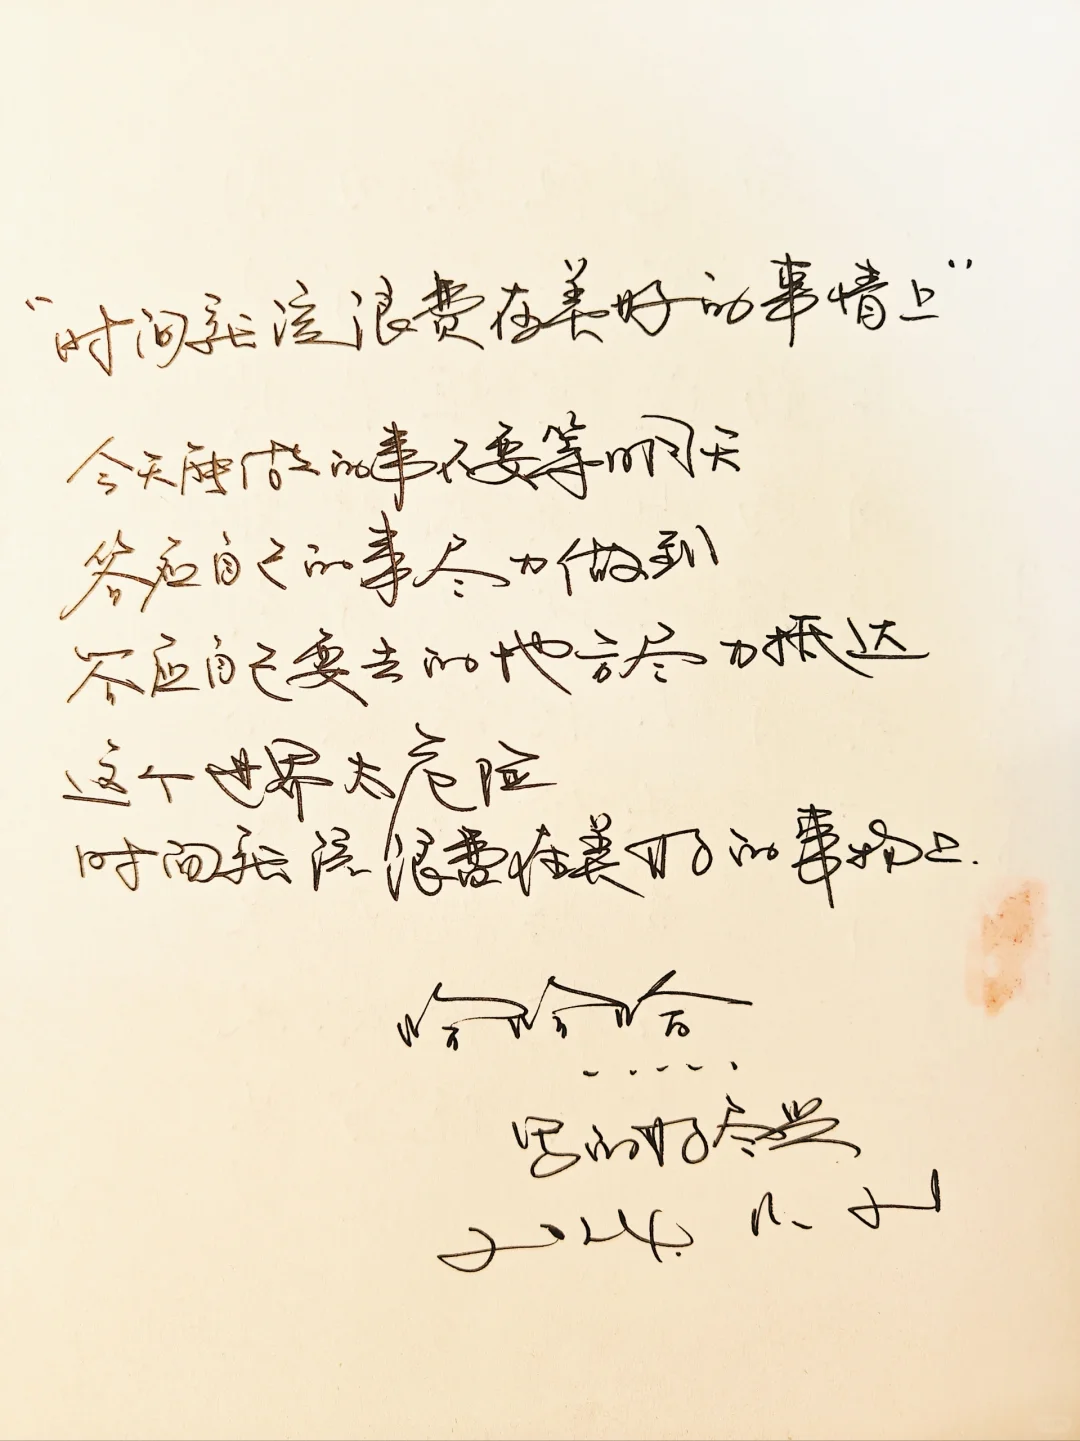 “时间就应浪费在美好的事情上”
今天能做的事不要等明天
答应自己的事尽力做到
答应自己要去的地方尽力抵达
这个世界太危险
时间就应浪费在美好的事物上.
哈哈哈
.....
写的好尽兴
2024.